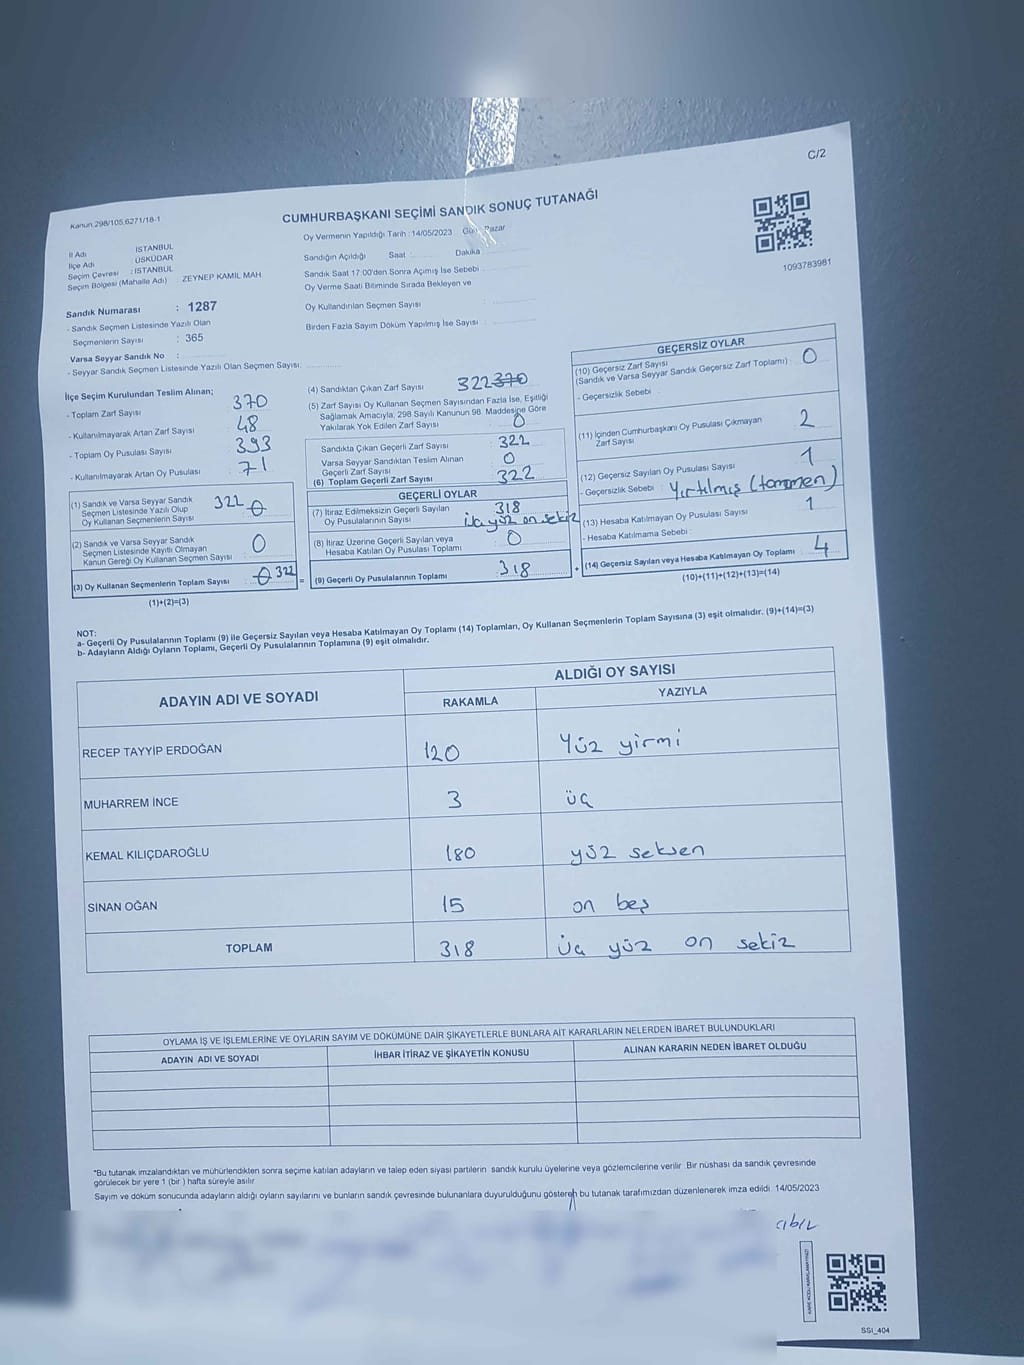 C/2
Kanun 298/105,6271/18-1
CUMHURBAŞKANI SEÇİMİ SANDIK SONUÇ TUTANAĞI
1093783981
İl Adı İSTANBUL
İlçe Adı ÜSKÜDAR
Seçim Çevresi : İSTANBUL
Seçim Bölgesi (Mahalle Adı) ZEYNEP KAMİL MAH
Sandık Numarası : 1287
- Sandık Seçmen Listesinde Yazılı Olan
Seçmenlerin Sayısı : 365
Varsa Seyyar Sandık No :
- Seyyar Sandık Seçmen Listesinde Yazılı Olan Seçmen Sayısı:
Oy Vermenin Yapıldığı Tarih : 14/05/2023 Gün Pazar
Sandığın Açıldığı Saat : Dakika
Sandık Saat 17:00'den Sonra Açımış İse Sebebi
Oy Verme Saati Bitiminde Sırada Bekleyen ve
Oy Kullandırılan Seçmen Sayısı :
Birden Fazla Sayım Döküm Yapılmış İse Sayısı :
İlçe Seçim Kurulundan Teslim Alınan;
- Toplam Zarf Sayısı 370
- Kullanılmayarak Artan Zarf Sayısı 48
- Toplam Oy Pusulası Sayısı 393
- Kullanılmayarak Artan Oy Pusulası : 71
(1) Sandık ve Varsa Seyyar Sandık
Seçmen Listesinde Yazılı Olup
Oy Kullanan Seçmenlerin Sayısı 322 0
(2) Sandık ve Varsa Seyyar Sandık
Seçmen Listesinde Kayıtlı Olmayan
Kanun Gereği Oy Kullanan Seçmen Sayısı 0
(3) Oy Kullanan Seçmenlerin Toplam Sayısı 0 322
(1)+(2)=(3)
=
(4) Sandıktan Çıkan Zarf Sayısı 322 370
(5) Zarf Sayısı Oy Kullanan Seçmen Sayısından Fazla İse, Eşitliği
Sağlamak Amacıyla, 298 Sayılı Kanunun 98. Maddesine Göre
Yakılarak Yok Edilen Zarf Sayısı : 0
Sandıkta Çıkan Geçerli Zarf Sayısı : 322
Varsa Seyyar Sandıktan Teslim Alınan
Geçerli Zarf Sayısı : 0
(6) Toplam Geçerli Zarf Sayısı 322
GEÇERLİ OYLAR
(7) İtiraz Edilmeksizin Geçerli Sayılan
Oy Pusulalarının Sayısı 318
yüz on sekiz
(8) İtiraz Üzerine Geçerli Sayılan veya
Hesaba Katılan Oy Pusulası Toplamı 0
(9) Geçerli Oy Pusulalarının Toplamı 318
+
GEÇERSİZ OYLAR
(10) Geçersiz Zarf Sayısı
(Sandık ve Varsa Seyyar Sandık Geçersiz Zarf Toplamı) : 0
- Geçersizlik Sebebi :
(11) İçinden Cumhurbaşkanı Oy Pusulası Çıkmayan
Zarf Sayısı 2
(12) Geçersiz Sayılan Oy Pusulası Sayısı 1
- Geçersizlik Sebebi : Yırtılmış (tamamen)
(13) Hesaba Katılmayan Oy Pusulası Sayısı 1
- Hesaba Katılmama Sebebi :
(14) Geçersiz Sayılan veya Hesaba Katılmayan Oy Toplamı 4
(10)+(11)+(12)+(13)=(14)
NOT:
a- Geçerli Oy Pusulalarının Toplamı (9) ile Geçersiz Sayılan veya Hesaba Katılmayan Oy Toplamı (14) Toplamları, Oy Kullanan Seçmenlerin Toplam Sayısına (3) eşit olmalıdır. (9)+(14)=(3)
b- Adayların Aldığı Oyların Toplamı, Geçerli Oy Pusulalarının Toplamına (9) eşit olmalıdır.
ADAYIN ADI VE SOYADI ALDIĞI OY SAYISI
RAKAMLA YAZIYLA
RECEP TAYYİP ERDOĞAN 120 Yüz yirmi
MUHARREM İNCE 3 üç
KEMAL KILIÇDAROĞLU 180 yüz seksen
SİNAN OĞAN 15 on beş
TOPLAM 318 üç yüz on sekiz
OYLAMA İŞ VE İŞLEMLERİNE VE OYLARIN SAYIM VE DÖKÜMÜNE DAİR ŞİKAYETLERLE BUNLARA AİT KARARLARIN NELERDEN İBARET BULUNDUKLARI
ADAYIN ADI VE SOYADI İHBAR İTİRAZ VE ŞİKAYETİN KONUSU ALINAN KARARIN NEDEN İBARET OLDUĞU
*Bu tutanak imzalandıktan ve mühürlendikten sonra seçime katılan adayların ve talep eden siyasi partilerin sandık kurulu üyelerine veya gözlemcilerine verilir. Bir nüshası da sandık çevresinde
görülecek bir yere 1 (bir ) hafta süreyle asılır
Sayım ve döküm sonucunda adayların aldığı oyların sayılarını ve bunların sandık çevresinde bulunanlara duyurulduğunu gösteren bu tutanak tarafımızdan düzenlenerek imza edildi 14/05/2023
KARE KODU KARALAMAYINIZ!
SSI_404